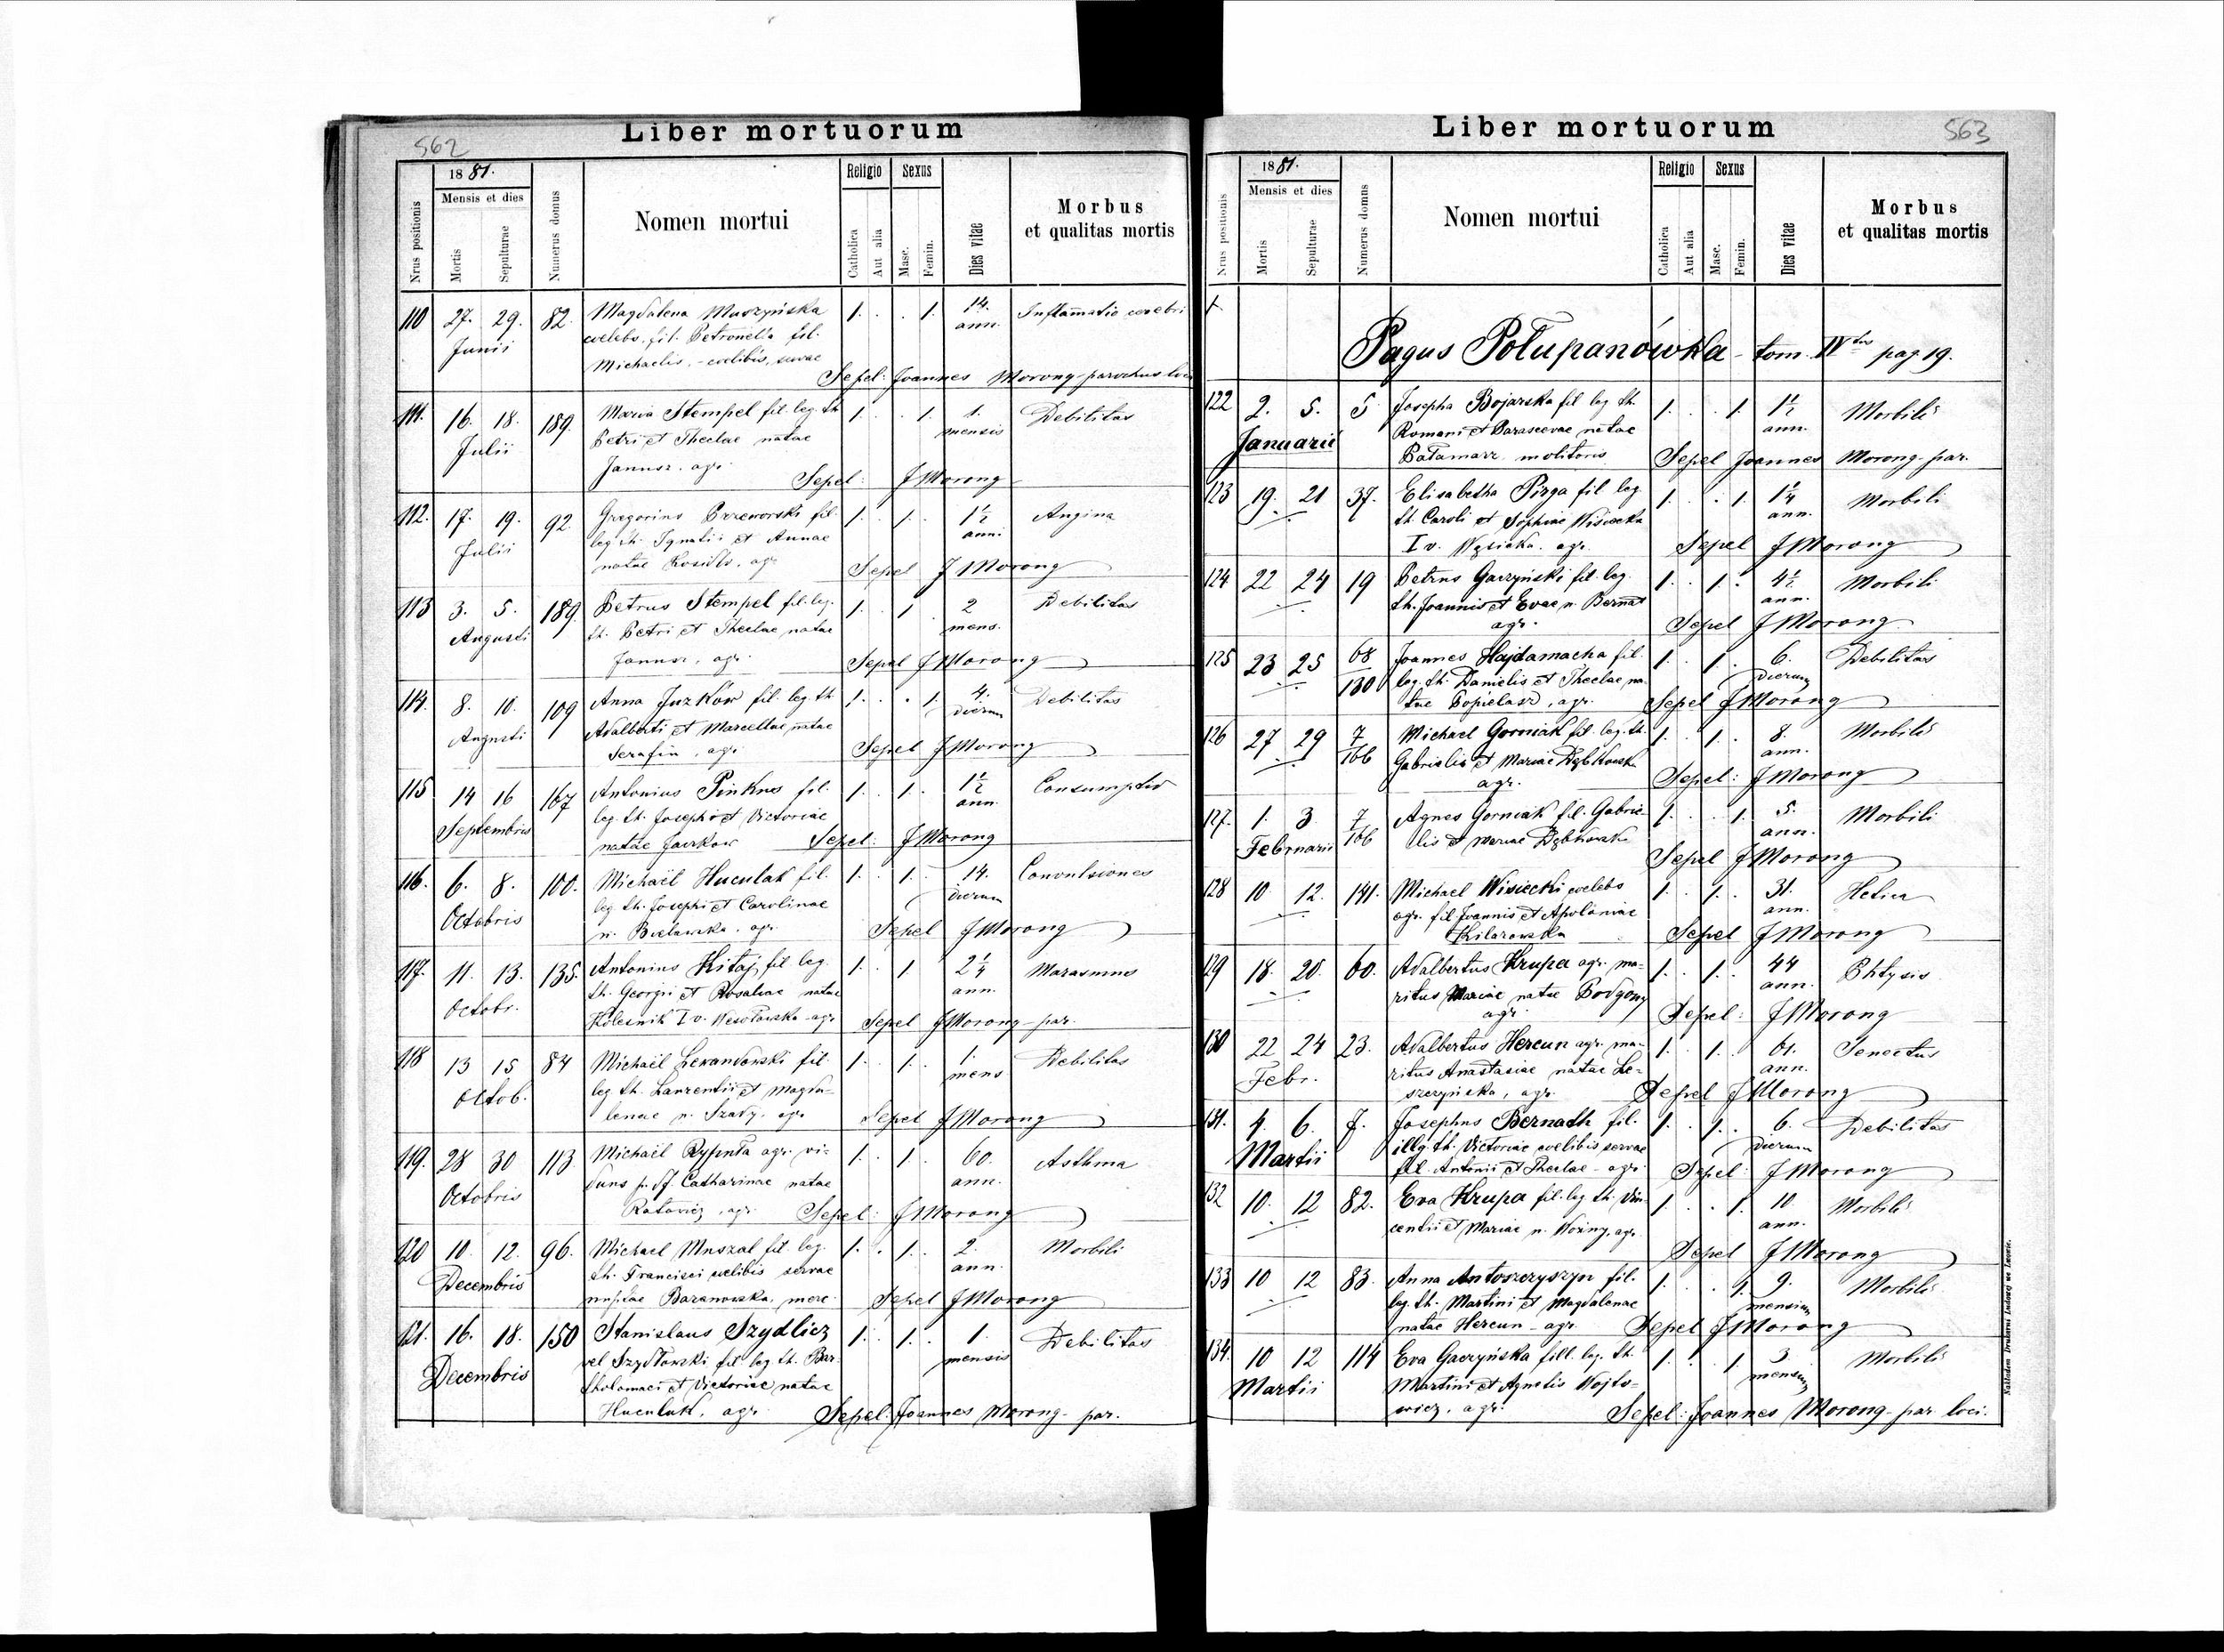 562
Liber mortuorum
Nrus positionis
1881.
Mensis et dies
Mortis
Sepulturae
Numerus domus
Nomen mortui
Religio
Catholica
Aut alia
Sexus
Masc.
Femin.
Dies vitae
Morbus
et qualitas mortis
110 27. 29. 82. Magdalena Muszyńska 1. . . 1. 14. Inflamatio cerebri
Junii coelebs. fil. Petronella fil. ann.
Michaelis, coelibis, servae
Sepel: Joannes Morong parochus loci
111. 16. 18. 189. Maria Stempel fil. leg. th. 1. . . 1. 1. Debilitas
Julii Petri et Theclae natae mensis
Janusz. agr.
Sepel: J Morong
112. 17. 19. 92 Gregorius Brzeworski fil. 1. . 1. . 1½ Angina
Julii leg. th. Ignatii et Annae ann.
natae agr.
Sepel J Morong
113 3. 5. 189. Petrus Stempel fil. leg. 1. . 1 2 Debilitas
Augusti th. Petri et Theclae natae mens.
Janusz, agr.
Sepel J Morong
114. 8. 10. 109 Anna Juzków fil. leg th 1. . . 1. 4. Debilitas
Augusti Adalberti et Marcellae natae dierum
Serafin, agr.
Sepel J Morong
115 14 16 167 Antonius Pinkus fil. 1. . 1. . 1½ Consumptio
Septembris leg. th. Josephi et Victoriae ann.
natae Jurkow Sepel: J Morong
116. 6. 8. 100. Michaël Huculak fil. 1. . 1. . 14. Convulsiones
Octobris leg th. Josephi et Carolinae dierum
n. Bielawska. agr. Sepel J Morong
117. 11. 13. 135. Antonius Kitaj, fil leg. 1. . 1 2¼ Marasmus
Octobr. th. Georgii et Rosaliae natae ann.
Kolesnik I v. Wesołowska agr Sepel J Morong par.
118 13 15 84 Michaël Lewandowski fil. 1. . 1. . 1. Debilitas
Octob. leg th. Laurentii et Magda- mens
lenae n. Szady, agr. Sepel J Morong
119. 28 30 113 Michaël Rypuła agr. vi- 1. . 1. 60. Asthma
Octobris duus p. df. Catharinae natae ann.
Ratowicz, agr. Sepel: J Morong
120 10. 12. 96. Michael Muszal fil. leg. 1. . 1. . 2. Morbili
Decembris th. Francisci coelibis servae ann.
nuptae Baranowska, merc. Sepel J Morong
121. 16. 18. 150 Stanislaus Szydlicz 1. . 1. . 1. Debilitas
Decembris vel Szydłowski fil leg. th. Bar- mensis
tholomaei et Victoriae natae
Huculak, agr. Sepel: Joannes Morong par.
563
Liber mortuorum
Nrus positionis
1881.
Mensis et dies
Mortis
Sepulturae
Numerus domus
Nomen mortui
Religio
Catholica
Aut alia
Sexus
Masc.
Femin.
Dies vitae
Morbus
et qualitas mortis
Pagus Połupanówka - tom. IVtus pag 19.
122 2. 5. 5 Josepha Bojarska fil leg th. 1. . . 1. 1½ Morbili
Januarii Romani et Parascevae natae ann.
Bałamarz molitoris Sepel Joannes Morong par.
123 19. 21 37. Elisabetha Pizga fil leg. 1. . . 1. 1¼ Morbili
th. Caroli et Sophiae Wisiecka ann.
I v. agr. Sepel J Morong
124 22 24 19 Petrus Garzyński fil. leg. 1. . 1. . 4½ Morbili
th. Joannis et Evae n. Bernat ann.
agr. Sepel J Morong
125 23 25 68/130 Joannes Hajdamacha fil. 1. . 1. . 6. Debilitas
leg. th. Danielis et Theclae na- dierum
tae Popielasz, agr. Sepel J Morong
126 27 29 7/166 Michael Gorniak fil. leg. th. 1. . 1. . 8. Morbili
Gabrielis et Mariae Dąbkowska ann.
agr. Sepel: J Morong
127. 1. 3. 7/166 Agnes Gorniak fil. Gabrie- 1. . . 1. 5. Morbili
Februarii lis et Mariae Dąbkowska ann.
Sepel J Morong
128 10 12. 141. Michael Wisiecki coelebs 1. . 1. . 31. Hetica
agr. fil Joannis et Apoloniae ann.
Kilarowska Sepel J Morong
129 18. 20. 60. Adalbertus Krupa agr. ma- 1. . 1. . 44 Phtysis
ritus Mariae natae Podgórny ann.
agr. Sepel: J Morong
130 22 24 23. Adalbertus Hercun agr. ma- 1. . 1. . 61. Senectus
Febr. ritus Anastasiae natae Le- ann.
szczyńska, agr. Sepel J Morong
131. 4. 6. 7. Josephus Bernath fil. 1. . 1. . 6. Debilitas
Martii illg. th. Victoriae coelibis servae dierum
fil. Antonii et Theclae - agr. Sepel: J Morong
132 10. 12 82. Eva Krupa fil. leg th. Vin- 1. . . 1. 10. Morbili
centii et Mariae n. Woźny, agr. ann.
Sepel J Morong
133 10 12 83. Anna Antoszczyszyn fil. 1. . . 1. 9. Morbili
leg. th. Martini et Magdalenae mensium
natae Hercun - agr. Sepel J Morong
134. 10 12 114 Eva Gaczyńska fill. leg. th. 1. . . 1. 3 Morbili
Martii Martini et Agnetis Wojto- mensium
wicz, agr. Sepel: Joannes Morong - par loci.
Nakładem Drukarni Ludowej we Lwowie.